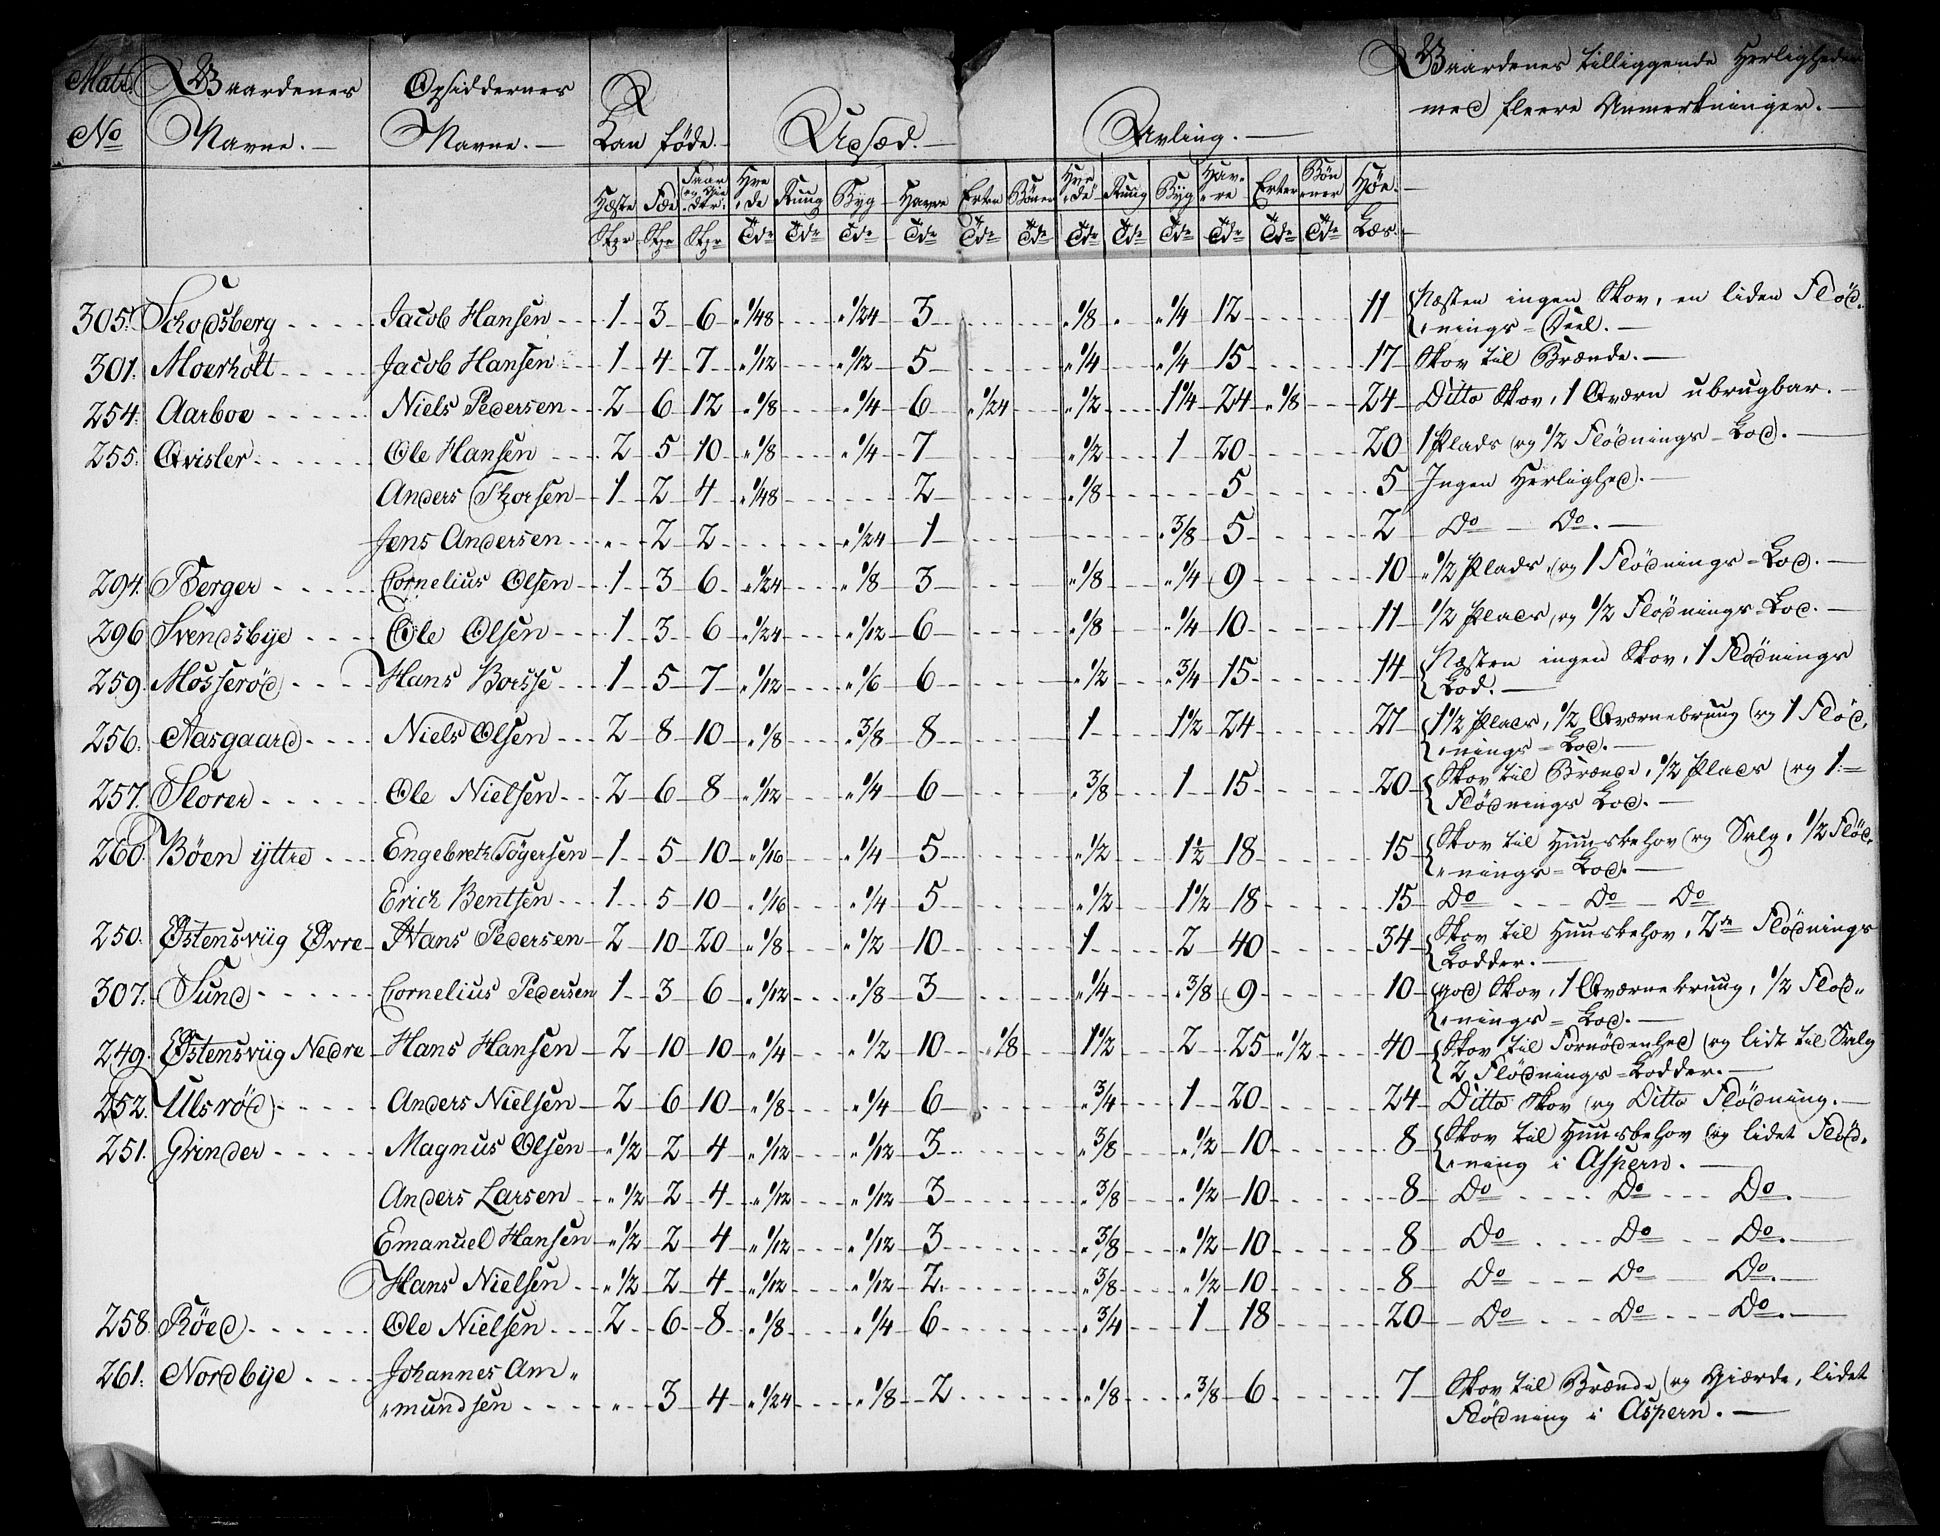 Matr. Gaardenes Opsiddernes Kan föde. Udsæd. Avling. Gaardenes tilliggende Herligheder
No Navne. Navne. med fleere Anmerkninger.
Hæste Fæe Faar og Gie- der. Hve- de Ruug Byg Havre Erter Bönner Hve- de Ruug Byg Hav- re Erter Bön- ner Höe.
Stkr Stkr Stkr Tdr Tdr Tdr Tdr Tdr Tdr Tdr Tdr Tdr Tdr Tdr Tdr Læs.
305. Schodsberg Jacob Hansen 1 3 6 " 1/48 " 1/24 3 " 1/8 " 1/4 12 11 Næsten ingen Skov, en liden Flöd-
nings- Deel.
301. Moerholt Jacob Hansen 1 4 7 " 1/12 " 1/12 5 " 1/4 " 1/4 15 17 Skov til Brænde.
254. Aarboe Niels Pedersen 2 6 12 " 1/8 " 1/4 6 " 1/24 " 1/2 1 1/4 24 " 1/8 24 Ditto Skov, 1 Qværn ubrugbar.
255. Qvisler Ole Hansen 2 5 10 " 1/8 " 1/4 7 " 1/2 1 20 20 1 Plads og 1/2 Flödnings-Lod.
Anders Thorsen 1 2 4 " 1/48 2 " 1/8 5 5 Ingen Herlighed.
Jens Andersen " 2 2 " 1/24 1 " 3/8 5 2 Do Do.
294. Berger Cornelius Olsen 1 3 6 " 1/24 " 1/8 3 " 1/8 " 1/4 9 10 " 1/2 Plads, og 1 Flödnings-Lod.
296 Svendsbye Ole Olsen 1 3 6 " 1/24 " 1/12 6 " 1/8 " 1/4 10 11 1/2 Plads, og 1/2 Flödnings-Lod.
259. Mosserød Hans Borsse 1 5 7 " 1/12 " 1/6 6 " 1/2 " 3/4 15 14 Næsten ingen Skov, 1 Flödnings
Lod.
256. Aasgaard Niels Olsen 2 8 10 " 1/8 " 3/8 8 1 1 1/2 24 27 1 1/2 Plads, 1/2 Qværnebruug og 1 Flöd-
nings-Lod.
257. Slorer Ole Nielsen 2 6 8 " 1/12 " 1/4 6 " 3/8 1 15 20 Skov til Brænde, 1/2 Plads og 1
Flödnings Lod.
260. Böen yttre Engebreth Tögersen 1 5 10 " 1/16 " 1/4 5 " 1/2 1 1/2 18 15 Skov til Huusbehov og Salg, 1/2 Flöd-
nings-Lod.
Erich Bentsen 1 5 10 " 1/16 " 1/4 5 " 1/2 1 1/2 18 15 Do Do Do
250. Østensviig Øvre Hans Pedersen 2 10 20 " 1/8 " 1/2 10 1 2 40 34 Skov til Huusbehov, 2de Flödnings
Lodder.
307. Sund Cornelius Pedersen 1 3 6 " 1/12 " 1/8 3 " 1/4 " 3/8 9 10 god Skov, 1 Qværnebruug, 1/2 Flöd-
nings-Lod.
249. Østensviig Nedre Hans Hansen 2 10 10 " 1/4 " 1/2 10 " 1/8 1 1/2 2 25 " 1/2 40 Skov til Fornödenhed og lidt til Salg
2 Flodnings-Lodder.
252. Ulsröd Anders Nielsen 2 6 10 " 1/8 " 1/4 6 " 3/4 1 20 24 Ditto Skov og Ditto Flödning.
251. Grinder Magnus Olsen " 1/2 2 4 " 1/12 " 1/12 3 " 3/8 " 1/2 10 8 Skov til Huusbehov og lidet Flöd-
ning i Aspern.
Anders Larsen " 1/2 2 4 " 1/12 " 1/12 3 " 3/8 " 1/2 10 8 Do Do Do.
Emanuel Hansen " 1/2 2 4 " 1/12 " 1/12 3 " 3/8 " 1/2 10 8 Do Do Do.
Hans Nielsen " 1/2 2 4 " 1/12 " 1/12 2 " 3/8 " 1/2 10 8 Do Do Do.
258. Röed Ole Nielsen 2 6 8 " 1/8 " 1/4 6 " 3/4 1 18 20 Do Do Do.
261. Nordbye Johannes Am-
mundsen " 3 4 " 1/24 " 1/8 2 " 1/8 " 3/8 6 7 Skov til Brænde og Gierde, lidet
Flödning i Aspern.